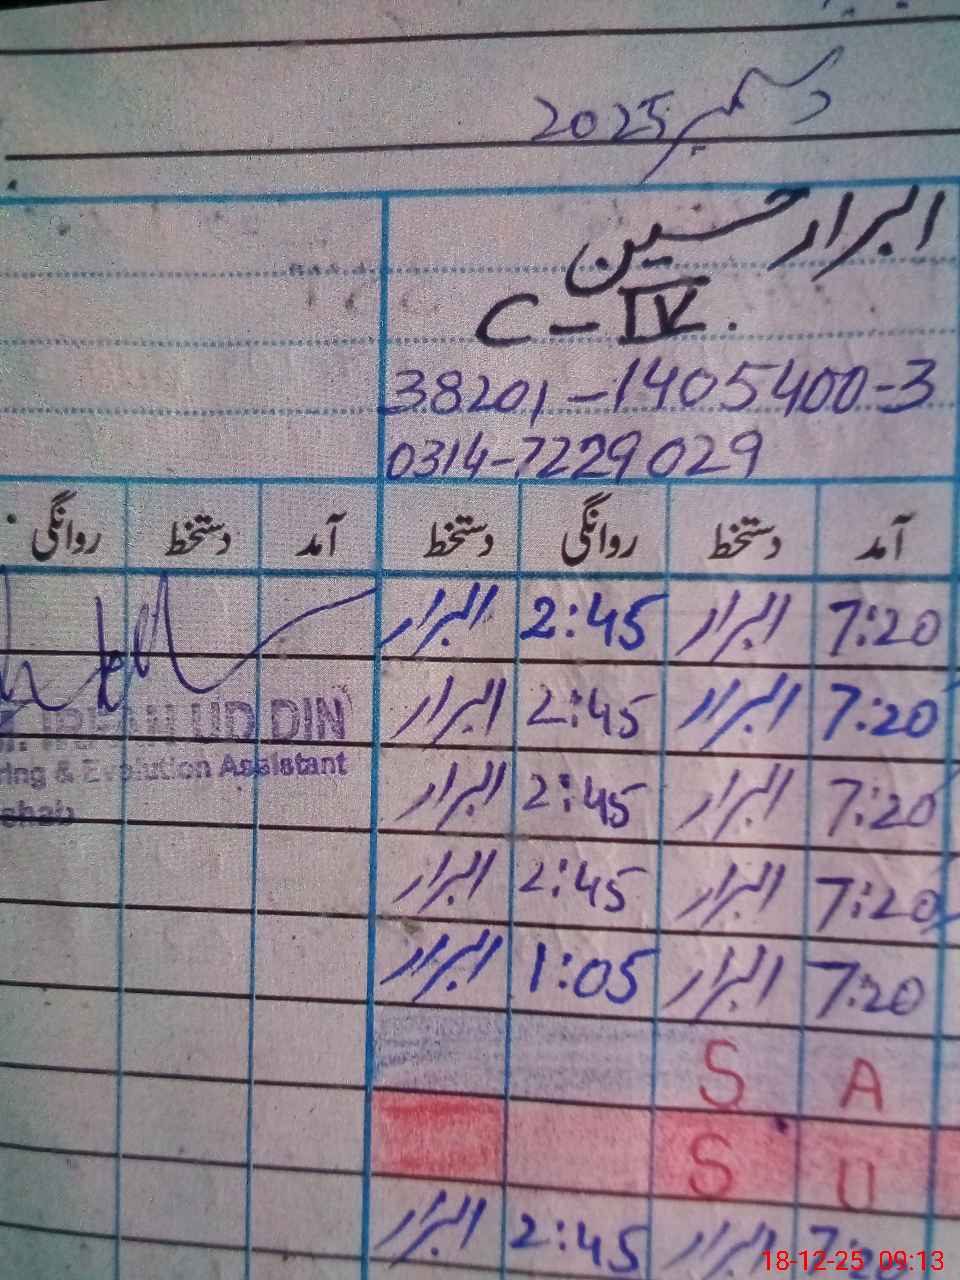 دسمبر 2025
ابرار حسین
C-IV.
38201-1405400-3
0314-7229029
آمد دستخط روانگی دستخط آمد دستخط روانگی
7:20 ابرار 2:45 ابرار
7:20 ابرار 2:45 ابرار
UD DIN
7:20 ابرار 2:45 ابرار
ring & Evolution Assistant
7:20 ابرار 2:45 ابرار
shab
7:20 ابرار 1:05 ابرار
S A
S U
ابرار 2:45 ابرار
18-12-25 09:13